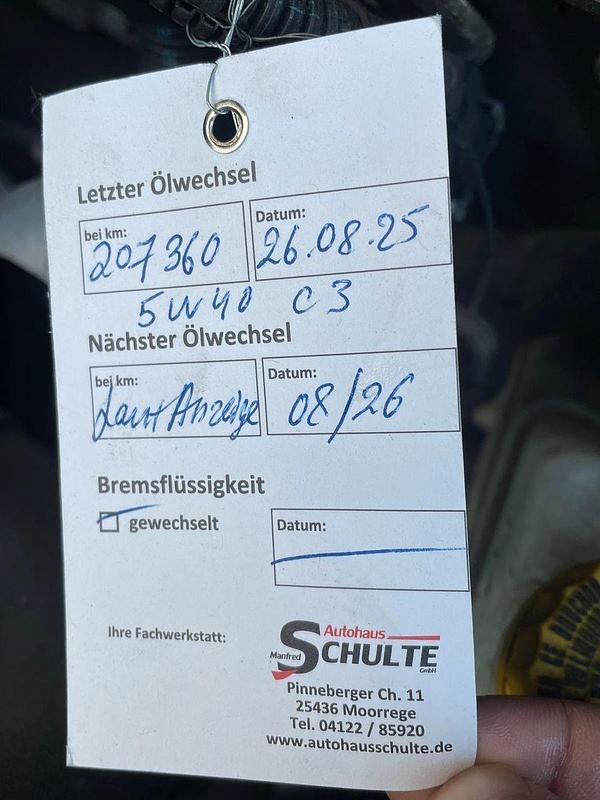 Letzter Ölwechsel
bei km: Datum:
207360 26.08.25
5W40 C3
Nächster Ölwechsel
bei km: Datum:
Laut Anzeige 08/26
Bremsflüssigkeit
gewechselt Datum:
Ihre Fachwerkstatt:
Autohaus
Manfred SCHULTE
GmbH
Pinneberger Ch. 11
25436 Moorrege
Tel. 04122 / 85920
www.autohausschulte.de